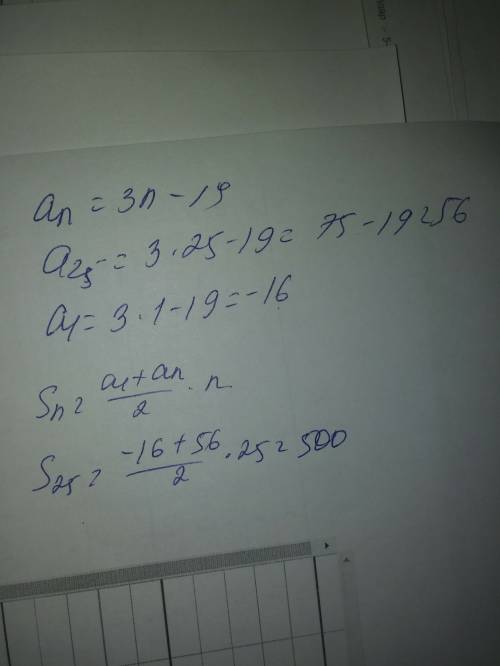 aₙ = 3n - 19
a₂₅ = 3 · 25 - 19 = 75 - 19 = 56
a₁ = 3 · 1 - 19 = -16
Sₙ = (a₁ + aₙ)/2 · n
S₂₅ = (-16 + 56)/2 · 25 = 500